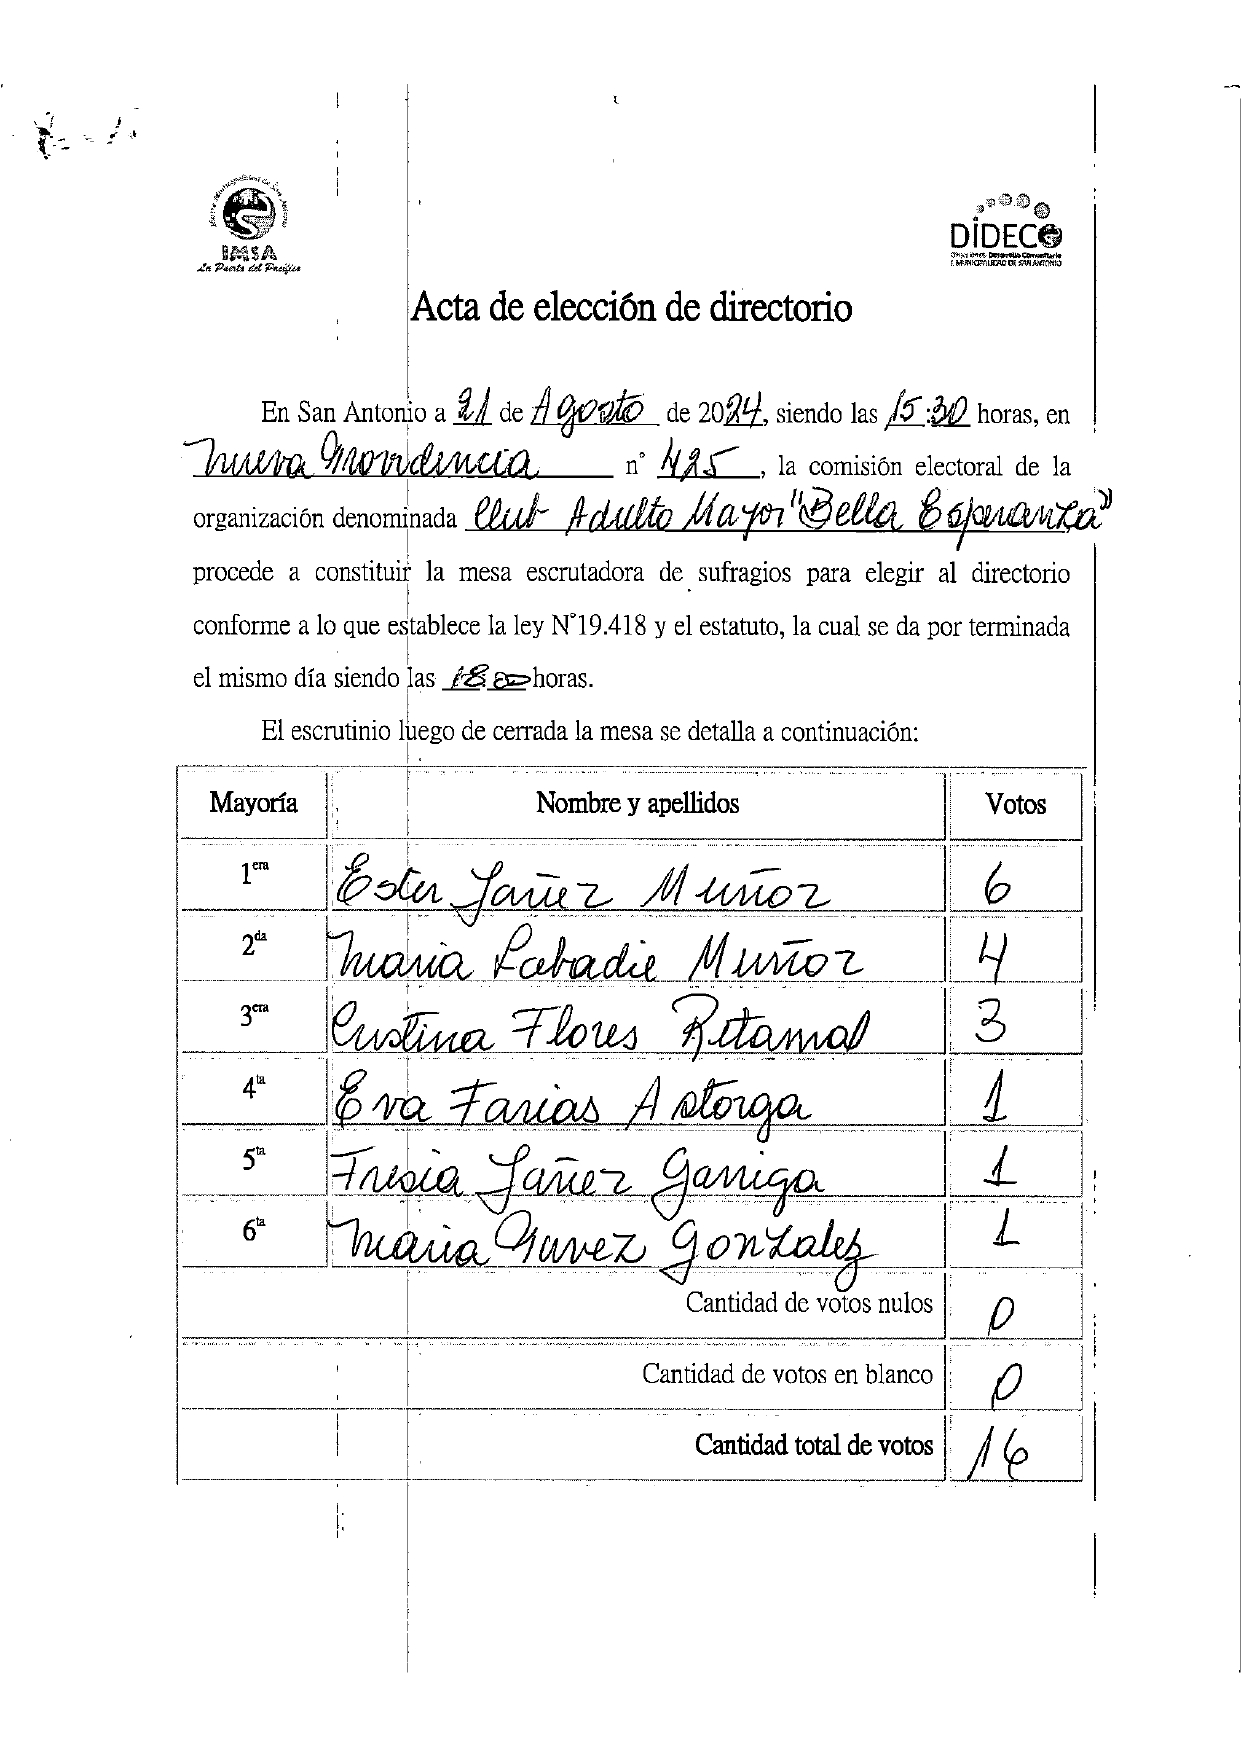 Ilustre Municipalidad de San Antonio
IMSA
La Puerta del Pacífico
DIDECO
Direcciones Desarrollo Comunitario
I. MUNICIPALIDAD DE SAN ANTONIO
Acta de elección de directorio
En San Antonio a 21 de Agosto de 2024, siendo las 15:30 horas, en
Nueva Providencia n° 425, la comisión electoral de la
organización denominada Club Adulto Mayor "Bella Esperanza"
procede a constituir la mesa escrutadora de sufragios para elegir al directorio
conforme a lo que establece la ley N°19.418 y el estatuto, la cual se da por terminada
el mismo día siendo las 18 00 horas.
El escrutinio luego de cerrada la mesa se detalla a continuación:
Mayoría Nombre y apellidos Votos
1era Ester Yañez Muñoz 6
2da Maria Labadie Muñoz 4
3era Cristina Flores Retamal 3
4ta Eva Farias Astorga 1
5ta Fresia Yañez Garriga 1
6ta Maria Nuñez Gonzalez 1
Cantidad de votos nulos 0
Cantidad de votos en blanco 0
Cantidad total de votos 16